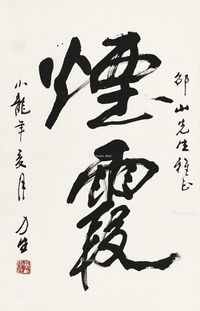 邵山先生雅正
煙霞
小龍年亥月
方生